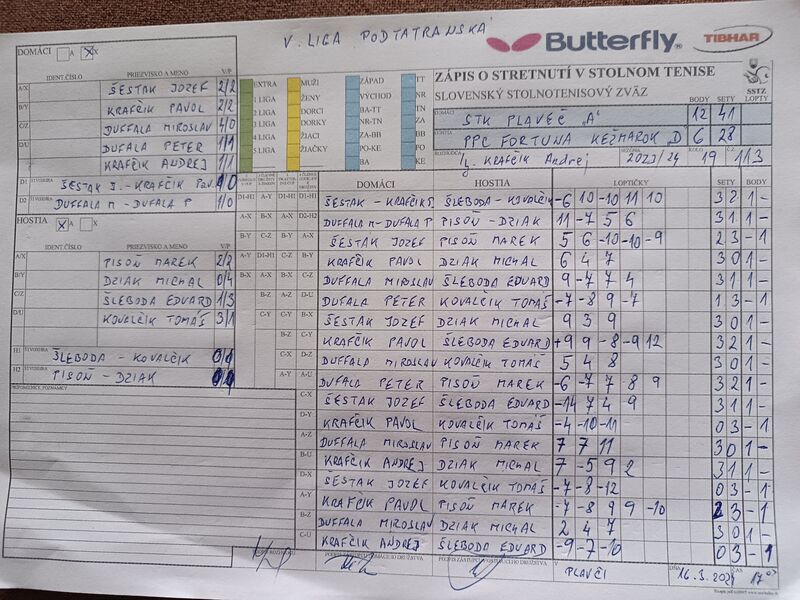 V. LIGA PODTATRANSKÁ
Butterfly
TIBHAR
DOMÁCI A X
IDENT.ČÍSLO PRIEZVISKO A MENO V/P
A/X ŠESTAK JOZEF 2/2
B/Y KRAFČIK PAVOL 2/2
C/Z DUFFALA MIROSLAV 4/0
D/U DUFALA PETER 1/1
KRAFČIK ANDREJ 1/1
D1 ŠESTAK J. - KRAFČIK PAV. 1/0
D2 DUFFALA M - DUFALA P 1/0
HOSTIA A X
IDENT.ČÍSLO PRIEZVISKO A MENO V/P
A/X PISOŇ MAREK 2/2
B/Y DZIAK MICHAL 0/4
C/Z ŠLEBODA EDUARD 1/3
D/U KOVALČIK TOMÁŠ 3/1
H1 ŠLEBODA - KOVALČIK 0/1
H2 PISOŇ - DZIAK
PRIPOMIENKY, POZNÁMKY
EXTRA MUŽI ZÁPAD TT
1 LIGA ŽENY VÝCHOD NR
2 LIGA DORCI BA-TT TN
3 LIGA DORKY NR-TN ZA
4 LIGA ŽIACI ZA-BB BB
5 LIGA ŽIAČKY PO-KE PO
BA KE
ZÁPIS O STRETNUTÍ V STOLNOM TENISE
SLOVENSKÝ STOLNOTENISOVÝ ZVÄZ
SSTZ
BODY SETY LOPTY
STK PLAVEČ "A" 12 41
PPC FORTUNA KEŽMAROK "D" 6 28
Krafčik Andrej 2023/24 19 11.3
DOMÁCI HOSTIA LOPTIČKY SETY BODY
ŠLEBODA - KOVALČIK -6 10 -10 11 10 3 2 1 -
DUFFALA M - DUFALA P PISOŇ - DZIAK 11 -7 5 6 3 1 1 -
ŠESTAK JOZEF PISOŇ MAREK 5 6 -10 -10 -9 2 3 - 1
KRAFČIK PAVOL DZIAK MICHAL 6 4 7 3 0 1 -
DUFFALA MIROSLAV ŠLEBODA EDUARD 9 -7 7 4 3 1 1 -
DUFALA PETER KOVALČIK TOMÁŠ -7 -8 9 -7 1 3 - 1
ŠESTAK JOZEF DZIAK MICHAL 9 3 9 3 0 1 -
KRAFČIK PAVOL ŠLEBODA EDUARD 9 9 -8 -9 12 3 2 1 -
DUFFALA MIROSLAV KOVALČIK TOMÁŠ 5 4 8 3 0 1 -
DUFALA PETER PISOŇ MAREK -6 -7 7 8 9 3 2 1 -
ŠESTAK JOZEF ŠLEBODA EDUARD -14 7 4 9 3 1 1 -
KRAFČIK PAVOL KOVALČIK TOMÁŠ -4 -10 -11 0 3 - 1
DUFFALA MIROSLAV PISOŇ MAREK 7 7 11 3 0 1 -
KRAFČIK ANDREJ DZIAK MICHAL 7 -5 9 2 3 1 1 -
ŠESTAK JOZEF KOVALČIK TOMÁŠ -7 -8 -12 0 3 - 1
KRAFČIK PAVOL PISOŇ MAREK -7 -8 9 9 -10 2 3 - 1
DUFFALA MIROSLAV DZIAK MICHAL 2 4 7 3 0 1 -
KRAFČIK ANDREJ ŠLEBODA EDUARD -9 -7 -10 0 3 - 1
V PLAVČI DŇA 16.3. ČAS 17